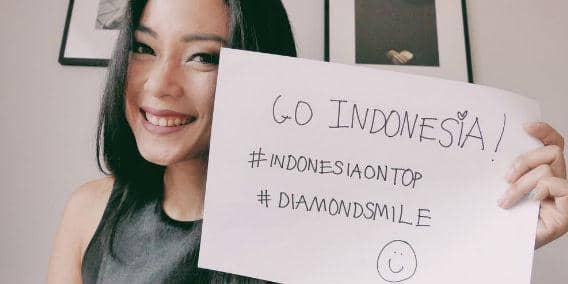 GO INDONESIA!
#INDONESIAONTOP
# DIAMONDSMILE